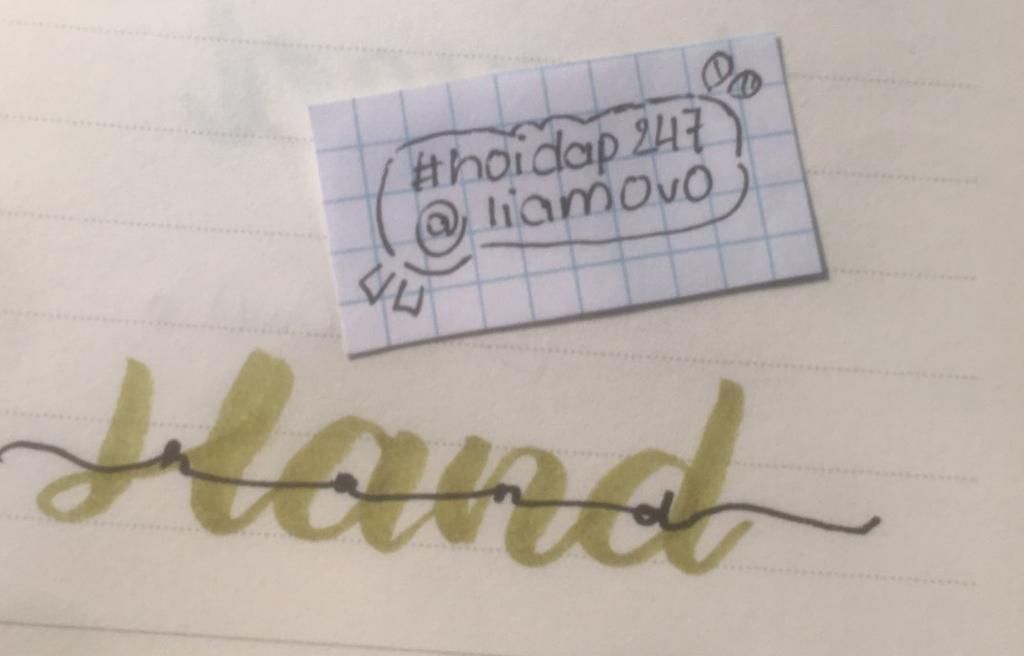 #hoidap247
@liamovo
Hand
hand